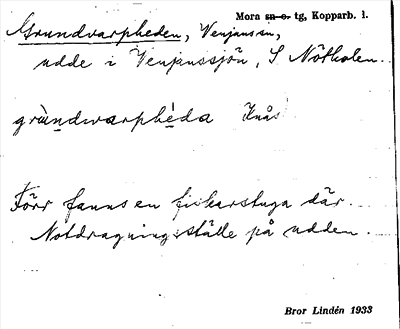 Mora sn o. tg, Kopparb. l.
Grundvarpheden, Venjans sn,
udde i Venjanssjön, S Nötholen.
grùndwarphèda Knås
Förr fanns en fiskarstuga där.
Notdragningsställe på udden.
Bror Lindén 1933